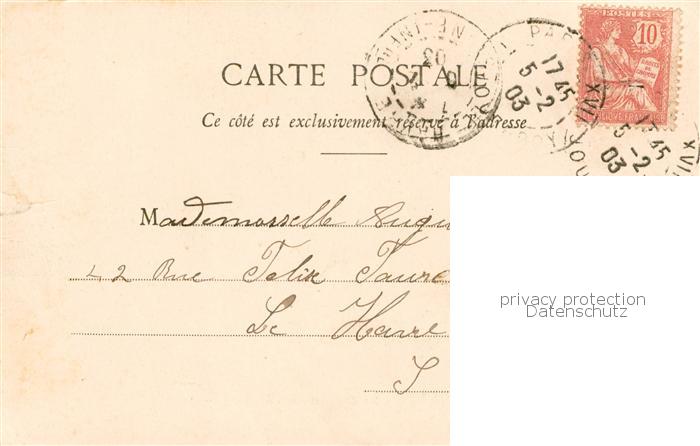 POSTES
10
CARTE POSTALE
Ce côté est exclusivement réservé à l'adresse
17 45
5-2
03
XVII
17 45
5-2
03
XVII
03
Mademoiselle
42 Rue Felix Faure
Le Havre
S
privacy protection
Datenschutz